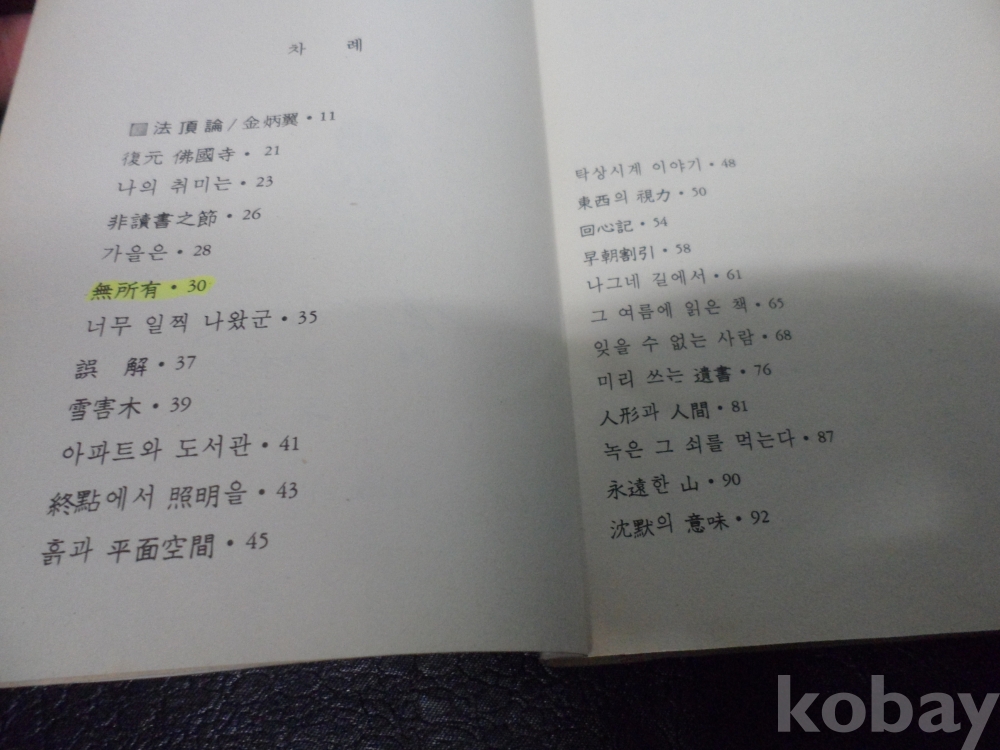 차 례
▨ 法頂論/金炳翼 • 11
復元 佛國寺 • 21
나의 취미는 • 23
非讀書之節 • 26
가을은 • 28
無所有 • 30
너무 일찍 나왔군 • 35
誤 解 • 37
雪害木 • 39
아파트와 도서관 • 41
終點에서 照明을 • 43
흙과 平面空間 • 45
탁상시계 이야기 • 48
東西의 視力 • 50
回心記 • 54
早朝割引 • 58
나그네 길에서 • 61
그 여름에 읽은 책 • 65
잊을 수 없는 사람 • 68
미리 쓰는 遺書 • 76
人形과 人間 • 81
녹은 그 쇠를 먹는다 • 87
永遠한 山 • 90
沈默의 意味 • 92
kobay